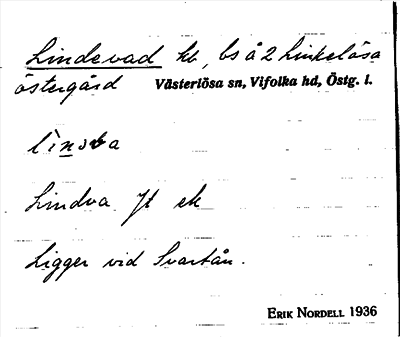 Lindevad kb, bs å 2 Linkelösa
östergård Västerlösa sn, Vifolka hd, Östg. l.
Lindva Jt ek
Ligger vid Svartån.
ERIK NORDELL 1936